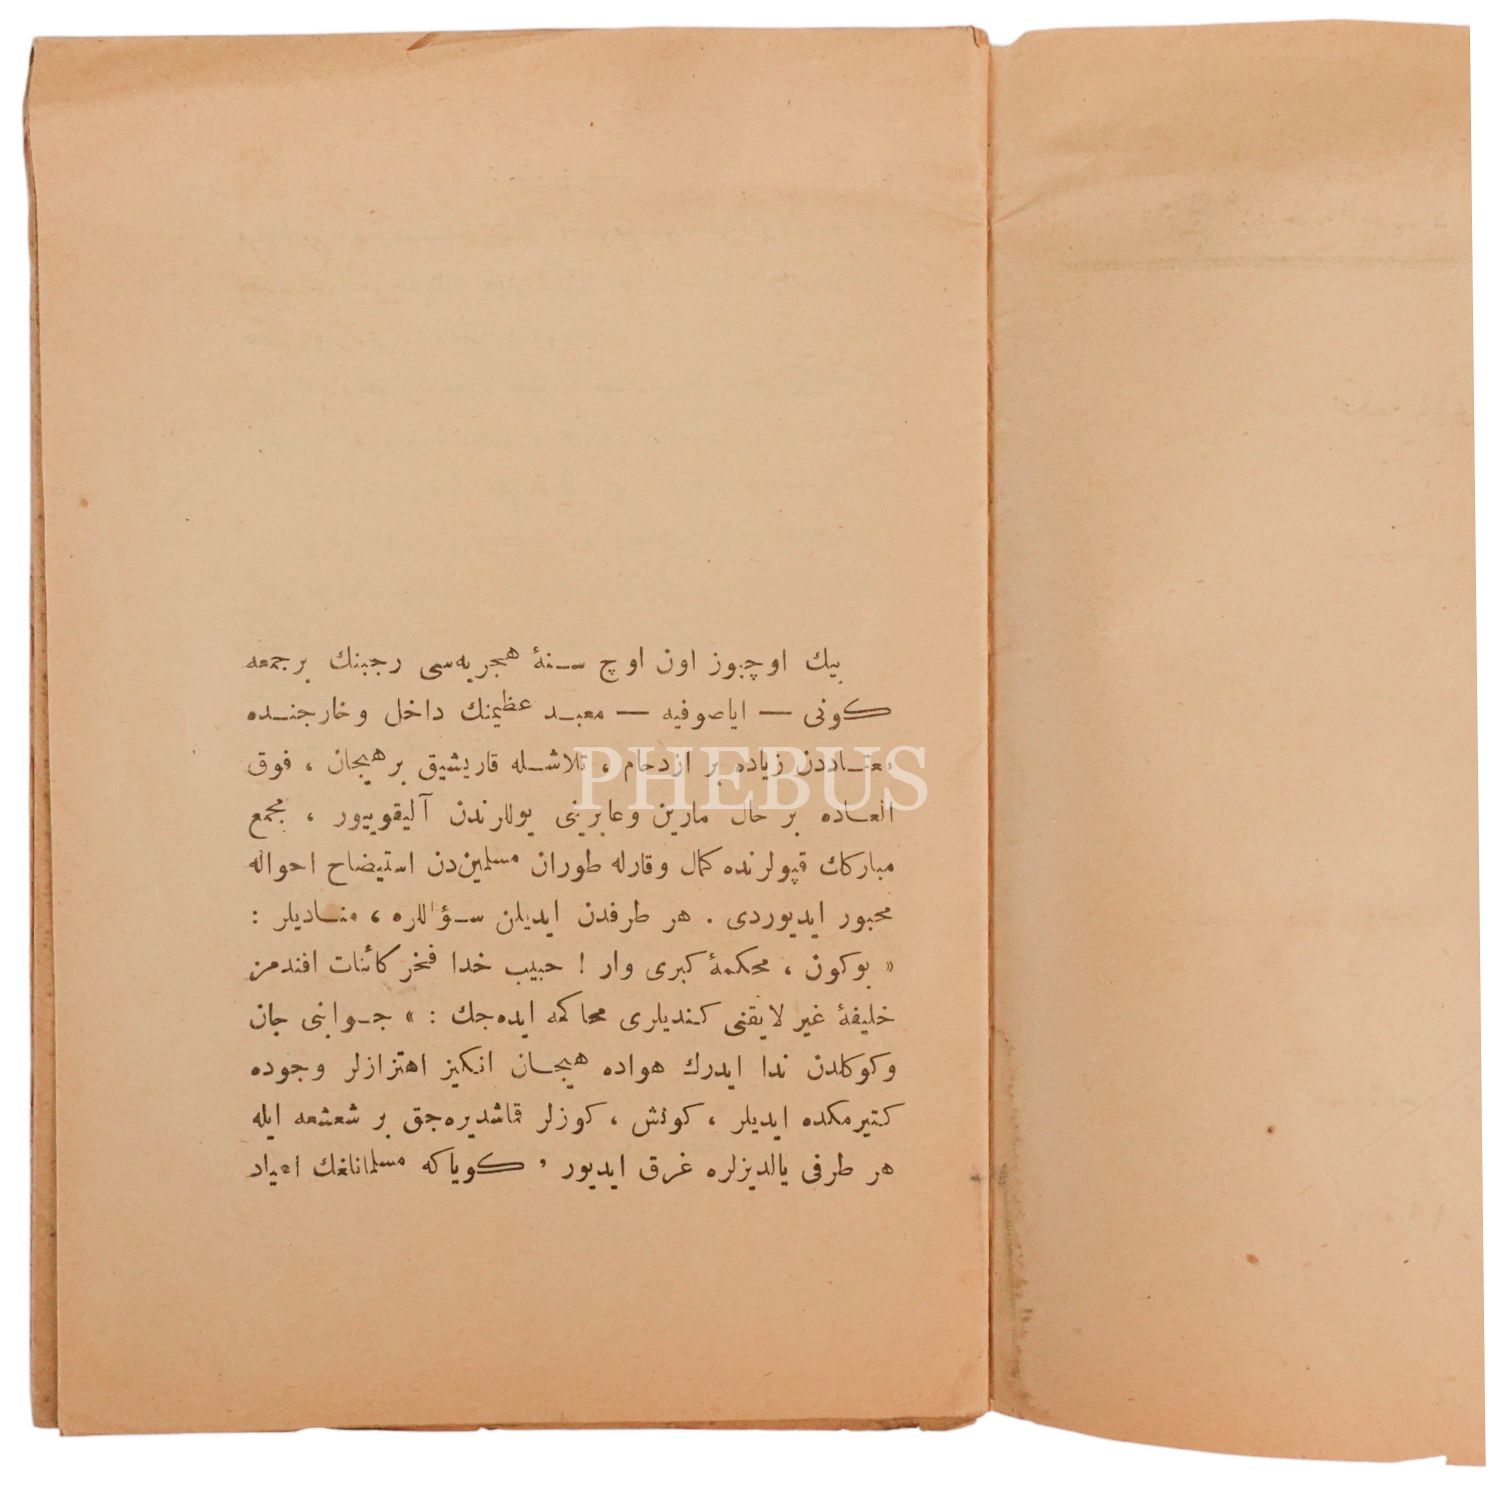 بیك اوچیوز اون اوچ سـنهٔ هجریه‌سی رجبنك برجمعه
كونی — ایاصوفیه — معبـد عظیمنك داخل وخارجنـده
معتـاددن زیاده بر ازدحام ، تلاشـله قاریشیق برهیجان ، فوق
العـاده بر حال مارین وعابرینی یوللرندن آلیقویییور ، مجمع
مباركك قپولرنده كمال وقارله طوران مسلمین‌دن استیضاح احواله
مجبور ایدیوردی . هر طرفدن ایدیلن سـؤاللره ، منـادیلر :
« بوكون ، محكمهٔ كبری وار ! حبیب خدا فخر كائنات افندمز
خلیفهٔ غیر لایقنی كـندیلری محاكمه ایده‌جك : » جـوابنی جان
وكوكلدن ندا ایدرك هواده هیجـان انكیز اهتزازلر وجوده
كتیرمكده ایدیلر ، كونش ، كوزلر قماشدیره‌جق بر شعشعه ایله
هر طرفی یالدیزلره غرق ایدیور , كویاكه مسلمانلغك اعیاد
PHEBUS